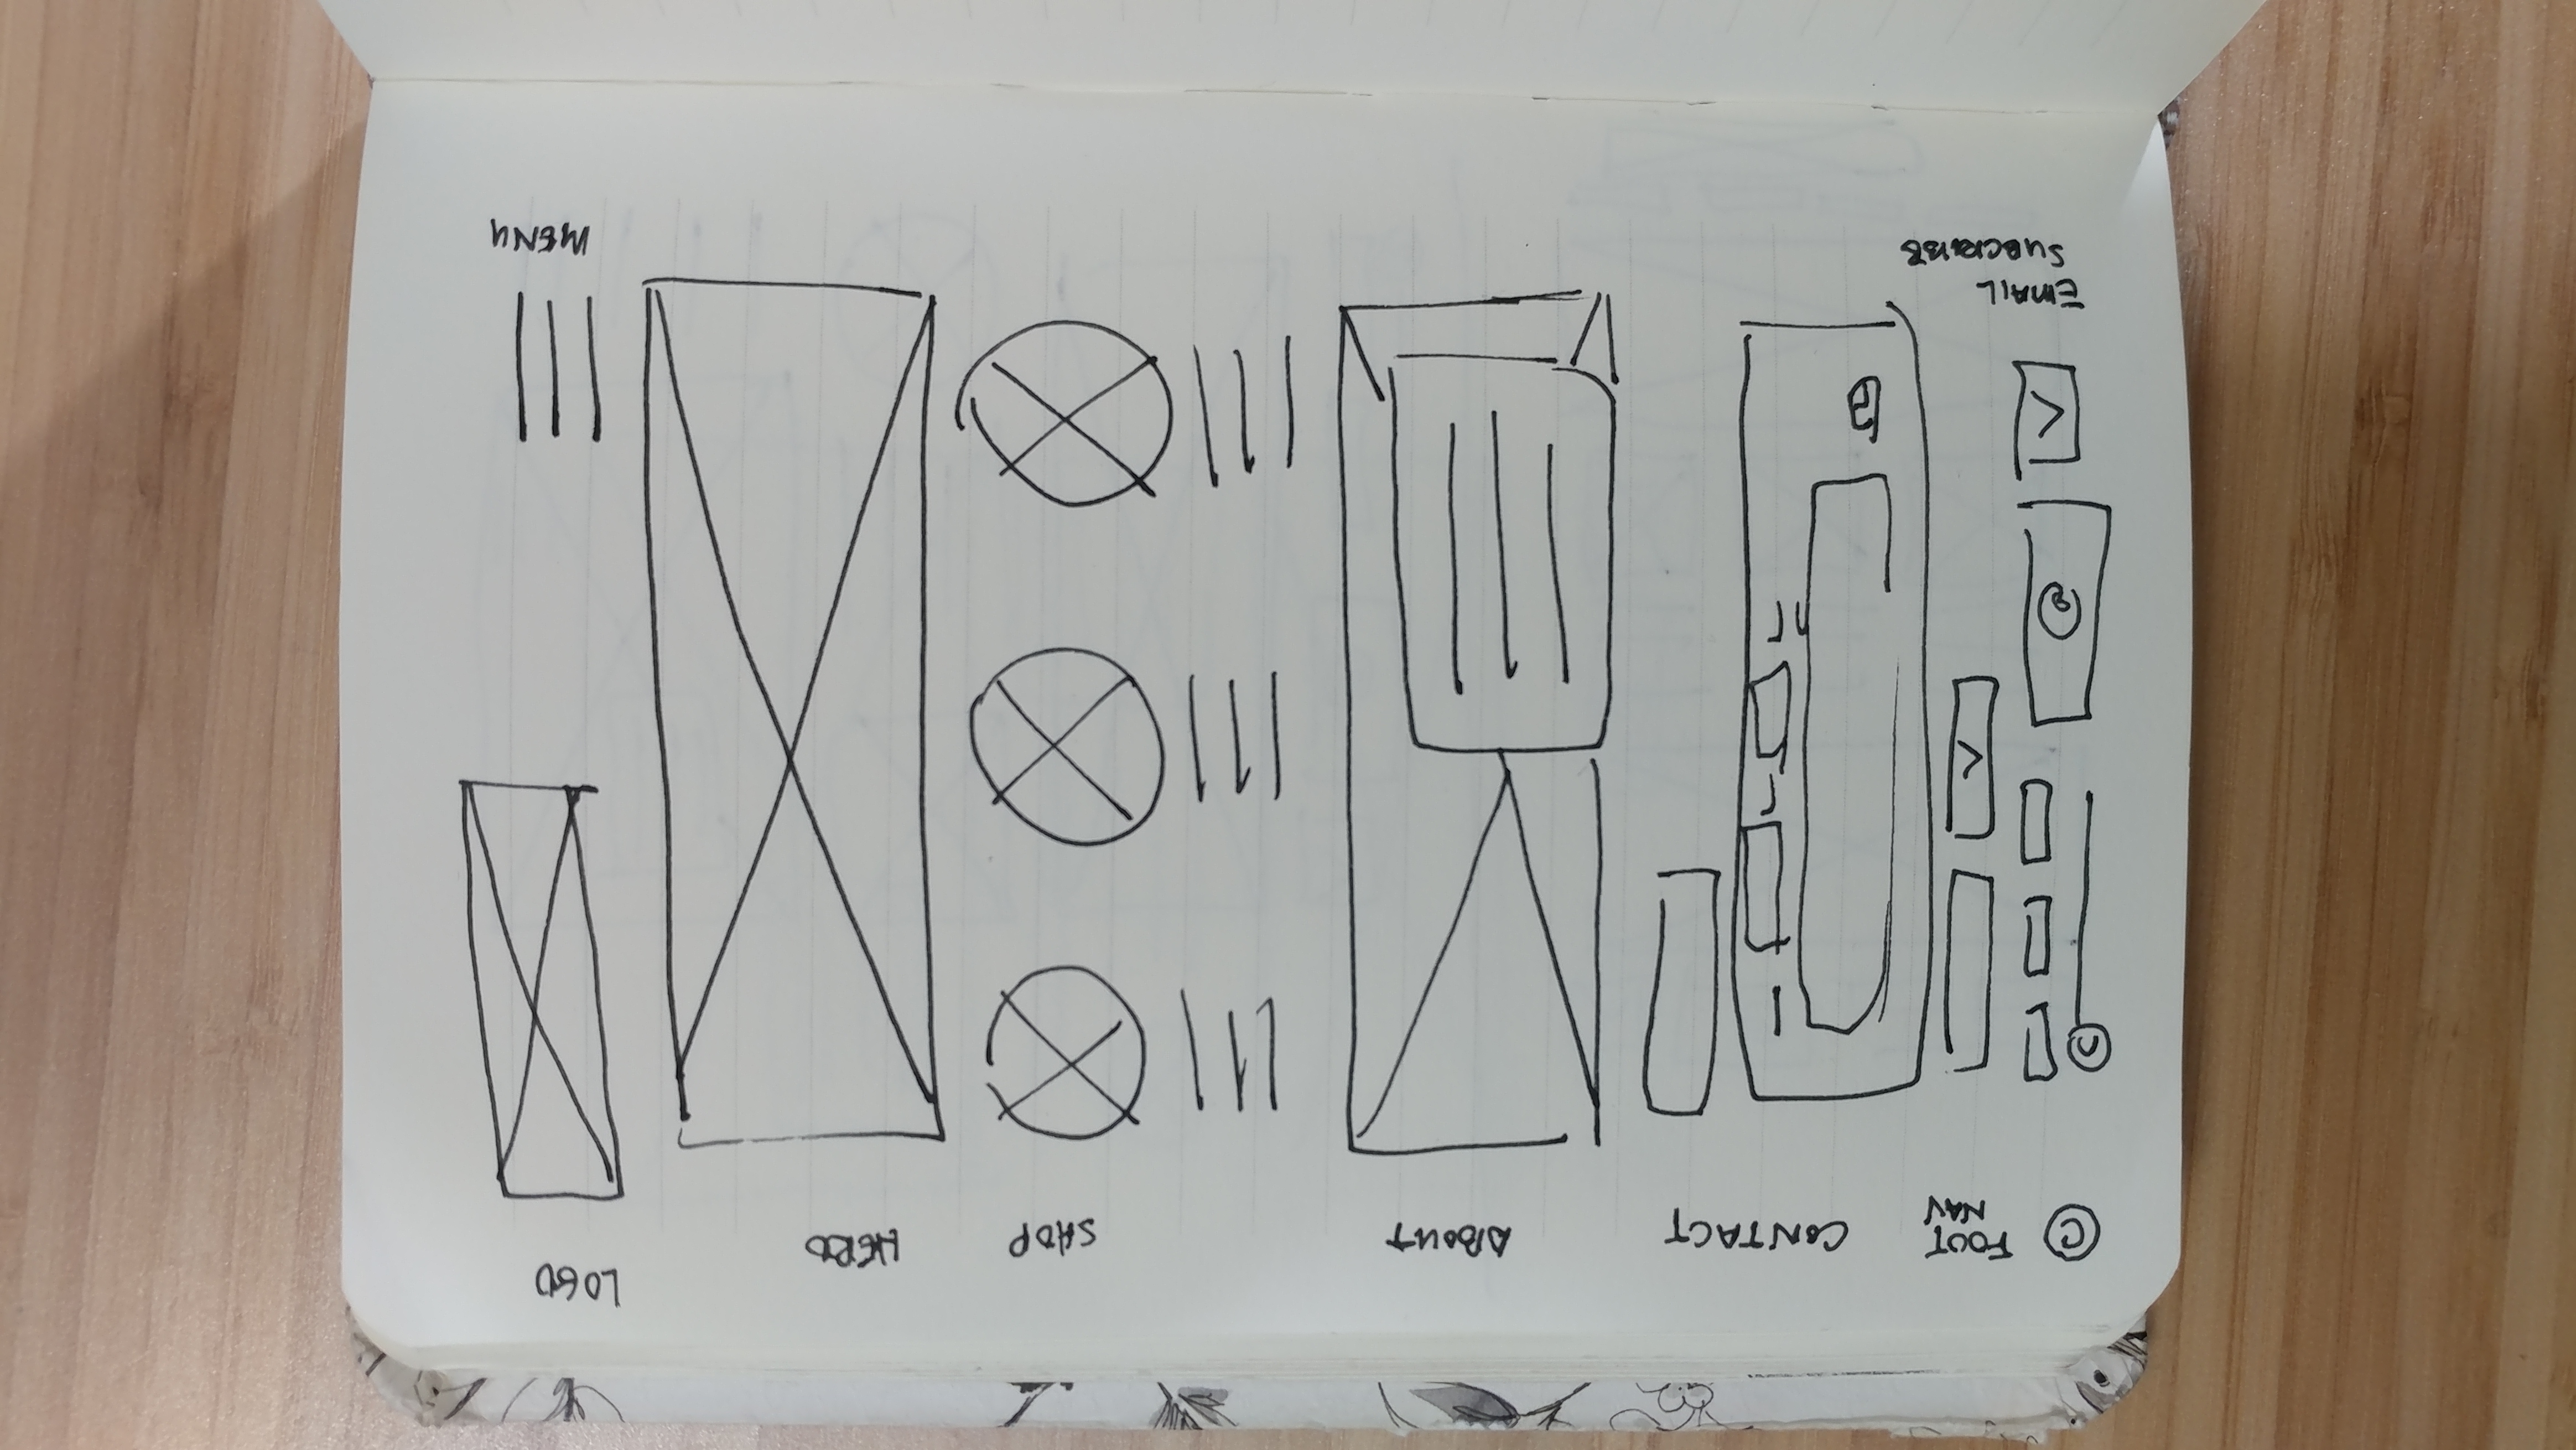 LOGO
MENU
HERO
SHOP
ABOUT
CONTACT
FOOT
NAV
©
©
@
EMAIL